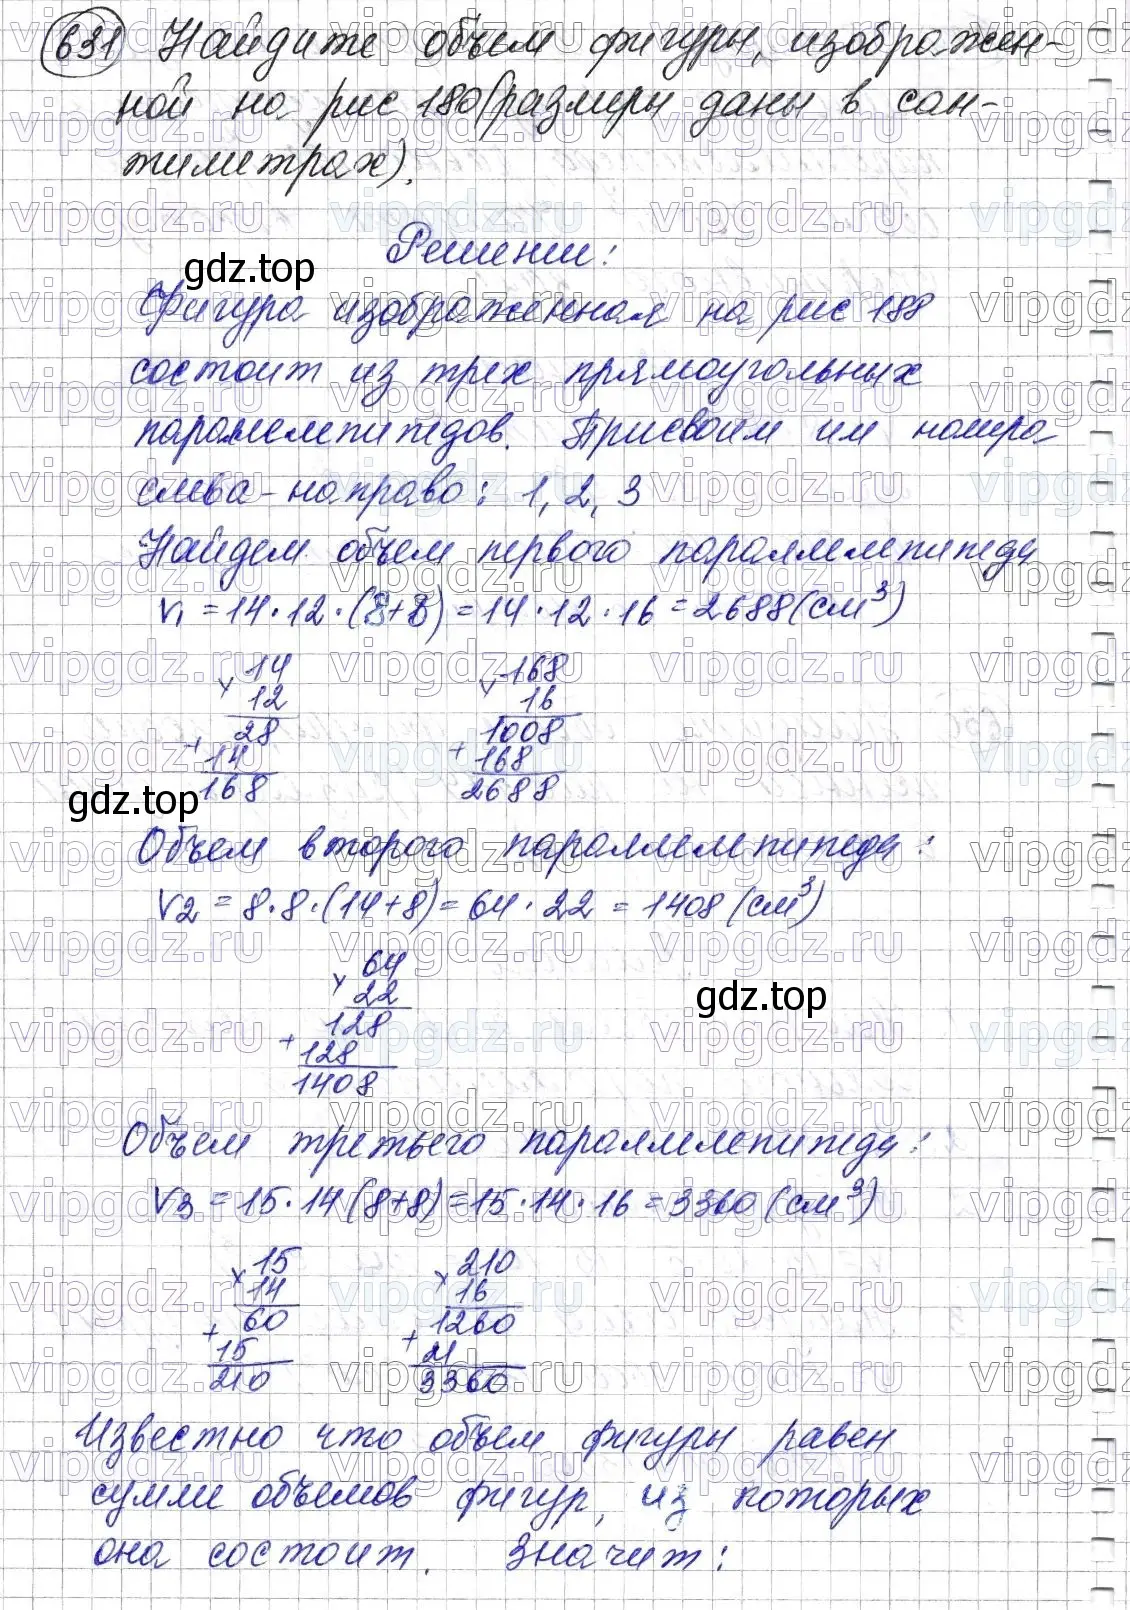 631 Найдите объем фигуры, изображен-
ной на рис 180 (размеры даны в сан-
тиметрах).
Решение:
gdz.top
Фигура изображенная на рис 188
состоит из трех прямоугольных
параллелепипедов. Присвоим им номера
слева-направо: 1, 2, 3
Найдем объем первого параллелепипеда
V1 = 14·12·(8+8) = 14·12·16 = 2688 (см³)
14 168
× 12 × 16
28 1008
+ 14 + 168
168 2688
gdz.top
Объем второго параллелепипеда:
V2 = 8·8·(14+8) = 64·22 = 1408 (см³)
64
× 22
128
+ 128
1408
gdz.top
Объем третьего параллелепипеда:
V3 = 15·14(8+8) = 15·14·16 = 3360 (см³)
15 210
× 14 × 16
60 1260
+ 15 + 21
210 3360
Известно что объем фигуры равен
сумме объемов фигур, из которых
она состоит. Значит: